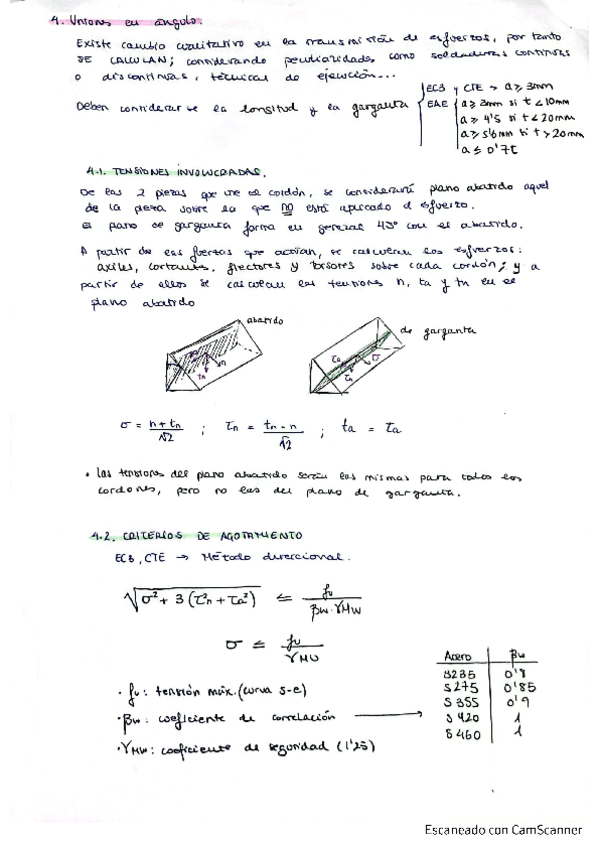 4. Uniones en ángulo.
Existe cambio cualitativo en la transmisión de esfuerzos, por tanto
SE CALCULAN; considerando peculiaridades como soldaduras continuas
o discontinuas, técnicas de ejecución...
Deben considerarse la longitud y la garganta
EC3 y CTE → a ≥ 3mm
EAE
a ≥ 3mm si t < 10mm
a ≥ 4'5 si t < 20mm
a ≥ 5'6mm si t > 20mm
a ≤ 0'7t
4.1. TENSIONES INVOLUCRADAS.
De las 2 piezas que une el cordón, se considerará plano abatido aquel
de la pieza sobre la que no está aplicado el esfuerzo.
El plano de garganta forma en general 45° con el abatido.
A partir de las fuerzas que actúan, se calculan los esfuerzos:
axiles, cortantes, flectores y torsores sobre cada cordón; y a
partir de ellos se calculan las tensiones n, ta y tn en el
plano abatido
abatido
n
tn
de garganta
τa
σ
τn
σ = n + tn / √2 ; τn = tn - n / √2 ; ta = τa
• Las tensiones del plano abatido serán las mismas para todos los
cordones, pero no las del plano de garganta.
4.2. CRITERIOS DE AGOTAMIENTO
EC3, CTE → Método direccional.
√σ² + 3 (τn² + τa²) ≤ fu / βw · γMw
σ ≤ fu / γMw
• fu: tensión máx. (curva s-e)
• βw: coeficiente de correlación →
• γMw: coeficiente de seguridad (1'25)
Acero βw
S235 0'8
S275 0'85
S355 0'9
S420 1
S460 1
Escaneado con CamScanner